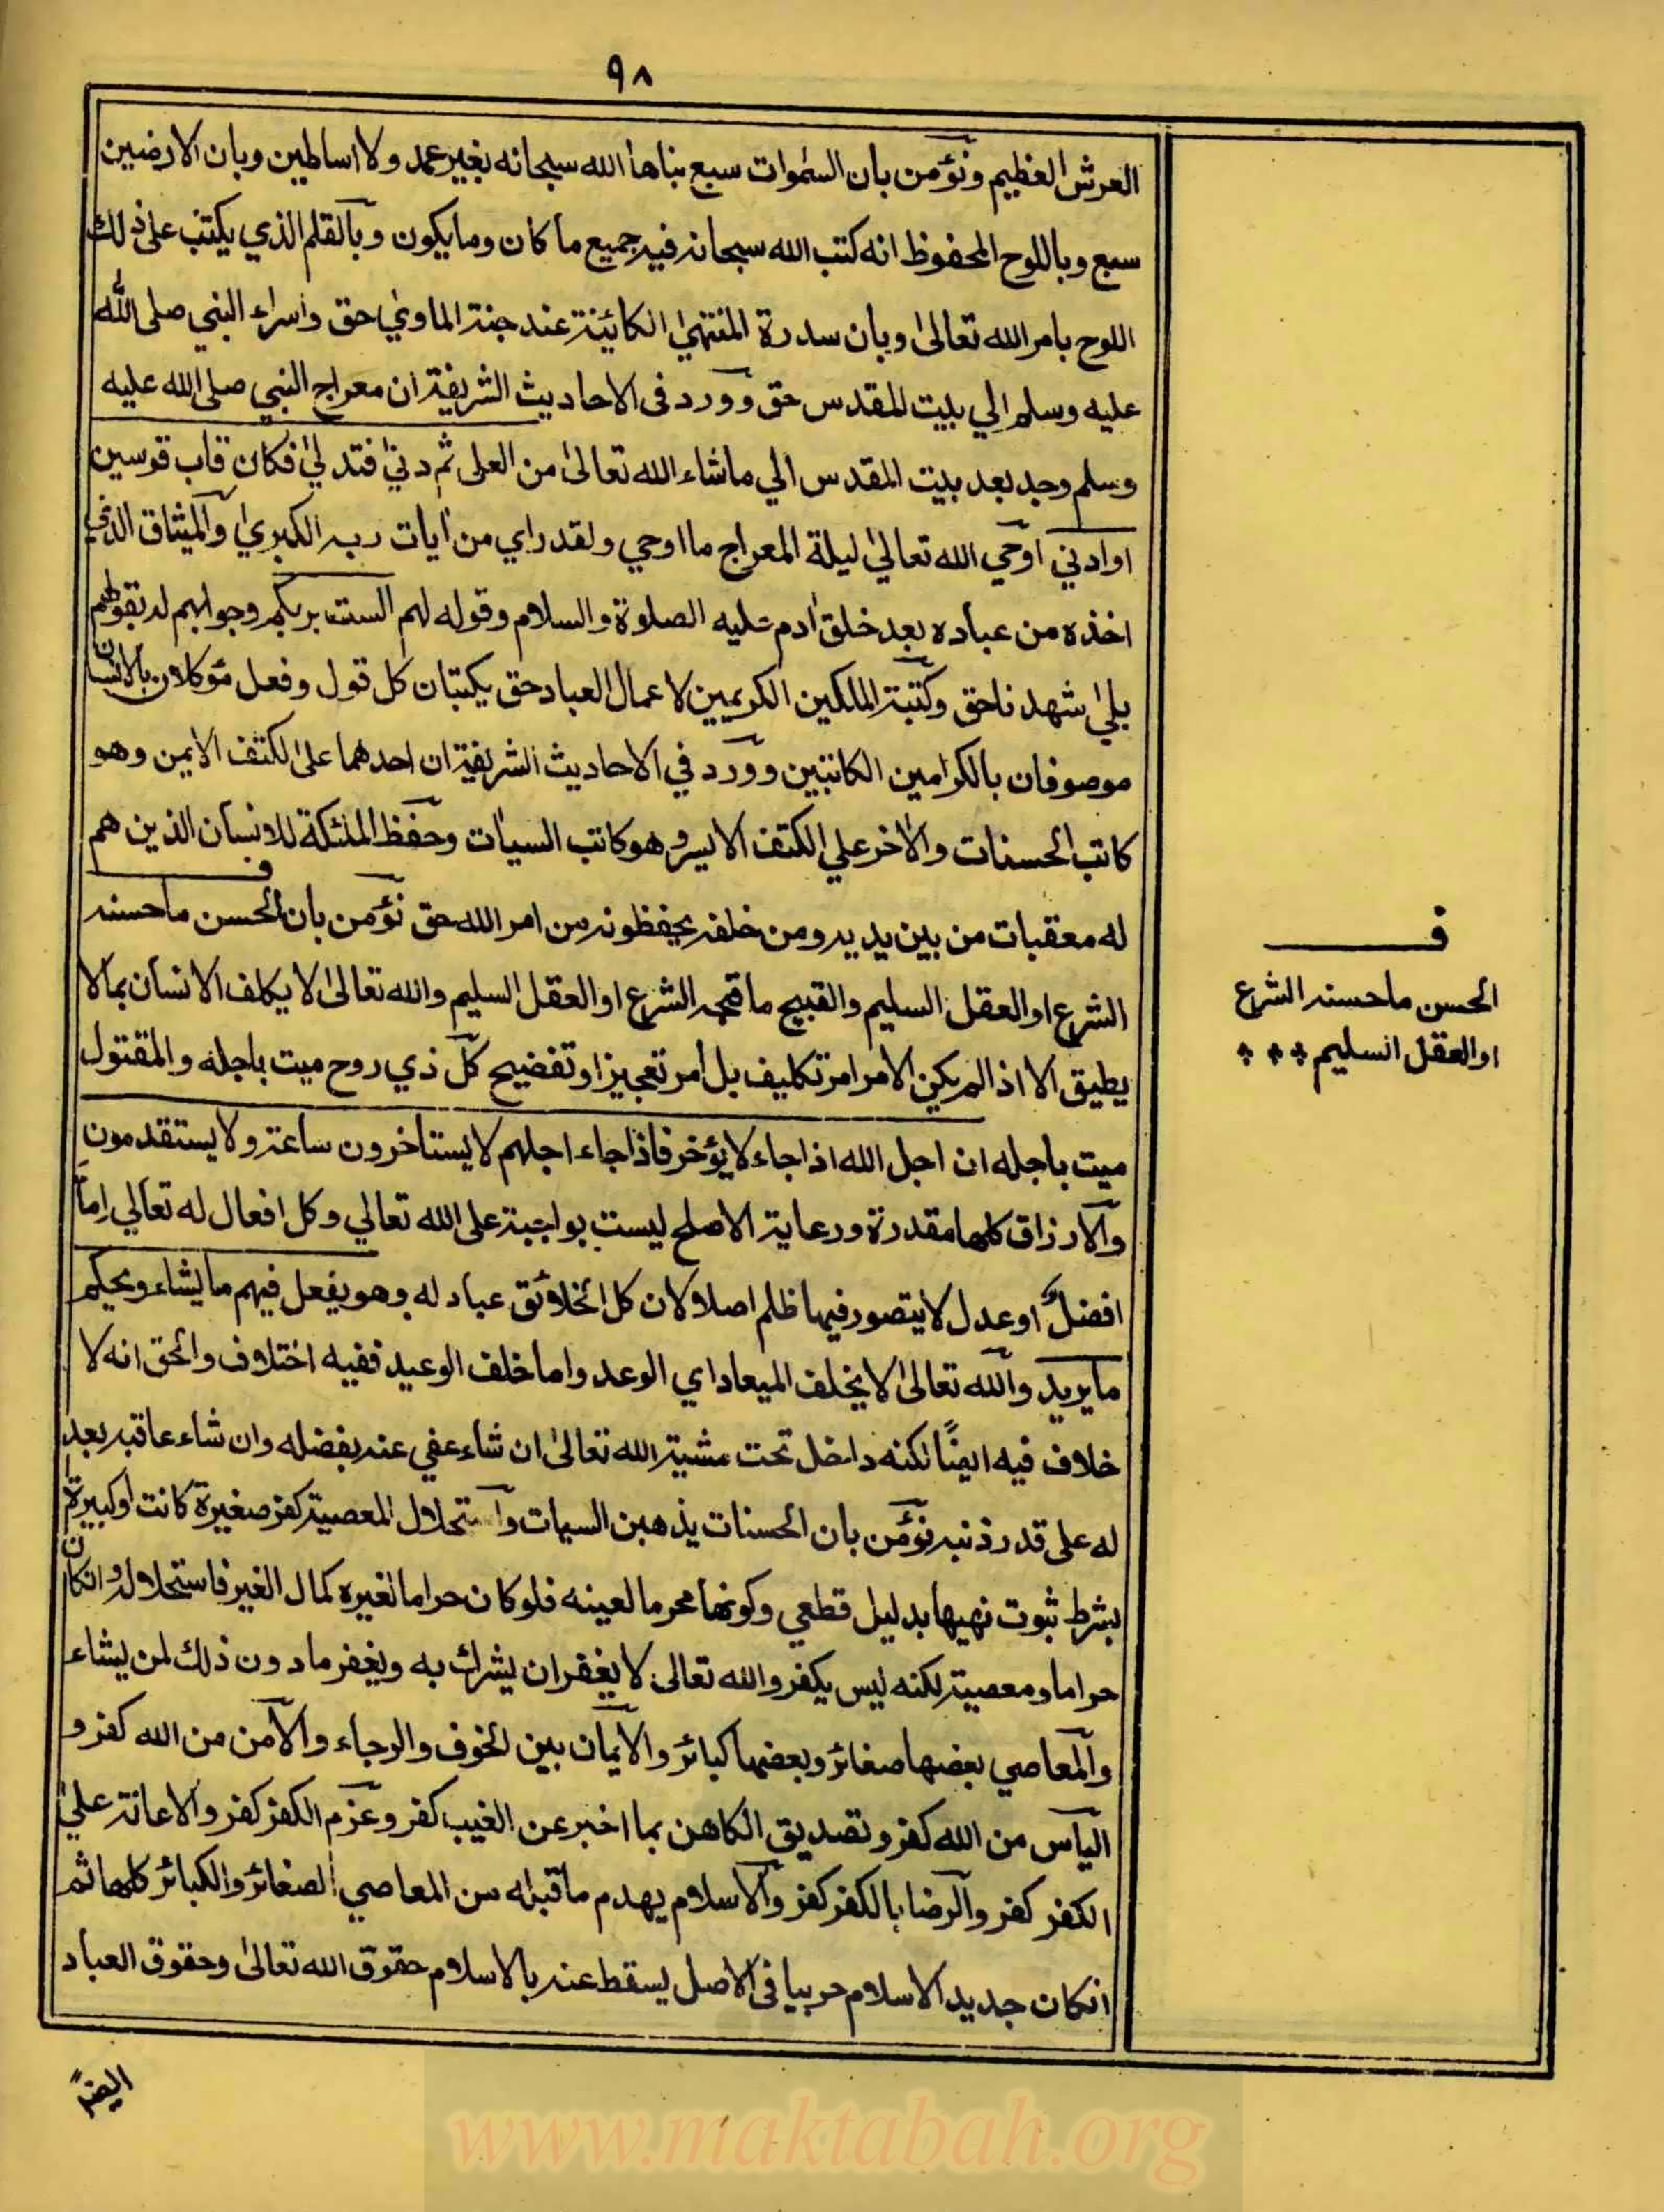 ٩٨
العرش العظيم ونؤمن بان السموات سبع بناها الله سبحانه بغير عمد ولا اساطين وبان الارضين
سبع وباللوح المحفوظ انه كتب الله سبحانه فيه جميع ما كان وما يكون وبالقلم الذي يكتب على ذلك
اللوح بامر الله تعالى وبان سدرة المنتهى الكائينة عند جنة الماوي حق واسراء النبي صلى الله
عليه وسلم الي بيت المقدس حق وورد في الاحاديث الشريفة ان معراج النبي صلى الله عليه
وسلم وجد بعد بيت المقدس الي ماشاء الله تعالى من العلى ثم دني فتدلي فكان قاب قوسين
او ادني اوحي الله تعالي ليلة المعراج ما اوحي ولقد راي من ايات ربه الكبري والميثاق الذي
اخذه من عباده بعد خلق ادم عليه الصلوة والسلام وقوله لهم الست بربكم وجوابهم له بقولهم
بلي شهدنا حق وكتبة الملكين الكريمين لاعمال العباد حق يكتبان كل قول وفعل مؤكلان بالانسان
موصوفان بالكرامين الكاتبين وورد في الاحاديث الشريفة ان احدهما على الكتف الايمن وهو
كاتب الحسنات والاخر علي الكتف الايسر وهو كاتب السيات وحفظ الملئكة للانسان الذين هم
له معقبات من بين يديه ومن خلفه يحفظونه من امر الله حق نؤمن بان الحسن ما حسنه
الشرع او العقل السليم والقبيح ما قبحه الشرع او العقل السليم والله تعالى لا يكلف الانسان بما لا
يطيق الا اذا لم يكن الامر امر تكليف بل امر تعجيز او تفضيح كل ذي روح ميت باجله والمقتول
ميت باجله ان اجل الله اذا جاء لا يؤخر فاذا جاء اجلهم لا يستاخرون ساعة ولا يستقدمون
والارزاق كلها مقدرة ورعاية الاصلح ليست بواجبة على الله تعالي وكل افعال له تعالي اما
افضل او عدل لا يتصور فيها ظلم اصلا لان كل الخلائق عباد له وهو يفعل فيهم ما يشاء ويحكم
ما يريد والله تعالى لا يخلف الميعاد اي الوعد واما خلف الوعيد ففيه اختلاف والحق انه لا
خلاف فيه ايضًا لكنه داخل تحت مشية الله تعالى ان شاء عفي عنه بفضله وان شاء عاقبه بعد
له على قدر ذنبه نؤمن بان الحسنات يذهبن السيات واستحلال المعصية كفر صغيرة كانت او كبيرة
بشرط ثبوت نهيها بدليل قطعي وكونها محرما لعينه فلو كان حراما لغيره كمال الغير فاستحلاله وانكان
حراما ومعصية لكنه ليس بكفر والله تعالى لا يغفر ان يشرك به ويغفر ما دون ذلك لمن يشاء
والمعاصي بعضها صغائر وبعضها كبائر والايمان بين الخوف والرجاء والامن من الله كفر و
الياس من الله كفر وتصديق الكاهن بما اخبر عن الغيب كفر وعزم الكفر كفر والاعانة علي
الكفر كفر والرضا بالكفر كفر والاسلام يهدم ما قبله من المعاصي الصغائر والكبائر كلها ثم
انكان جديد الاسلام حربيا في الاصل يسقط عنه بالاسلام حقوق الله تعالى وحقوق العباد
ايضًا
ف
الحسن ما حسنه الشرع
او العقل السليم
www.maktabah.org